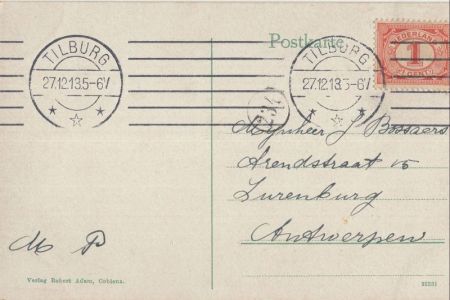 Postkarte
TILBURG
27.12.13.5-6V
TILBURG
27.12.13.5-6V
NEDERLAND
1
CENT
234
Mijnheer J Bossaers
Arendstraat 15
Lurenburg
Antwerpen
M P
Verlag Robert Adam, Coblenz.